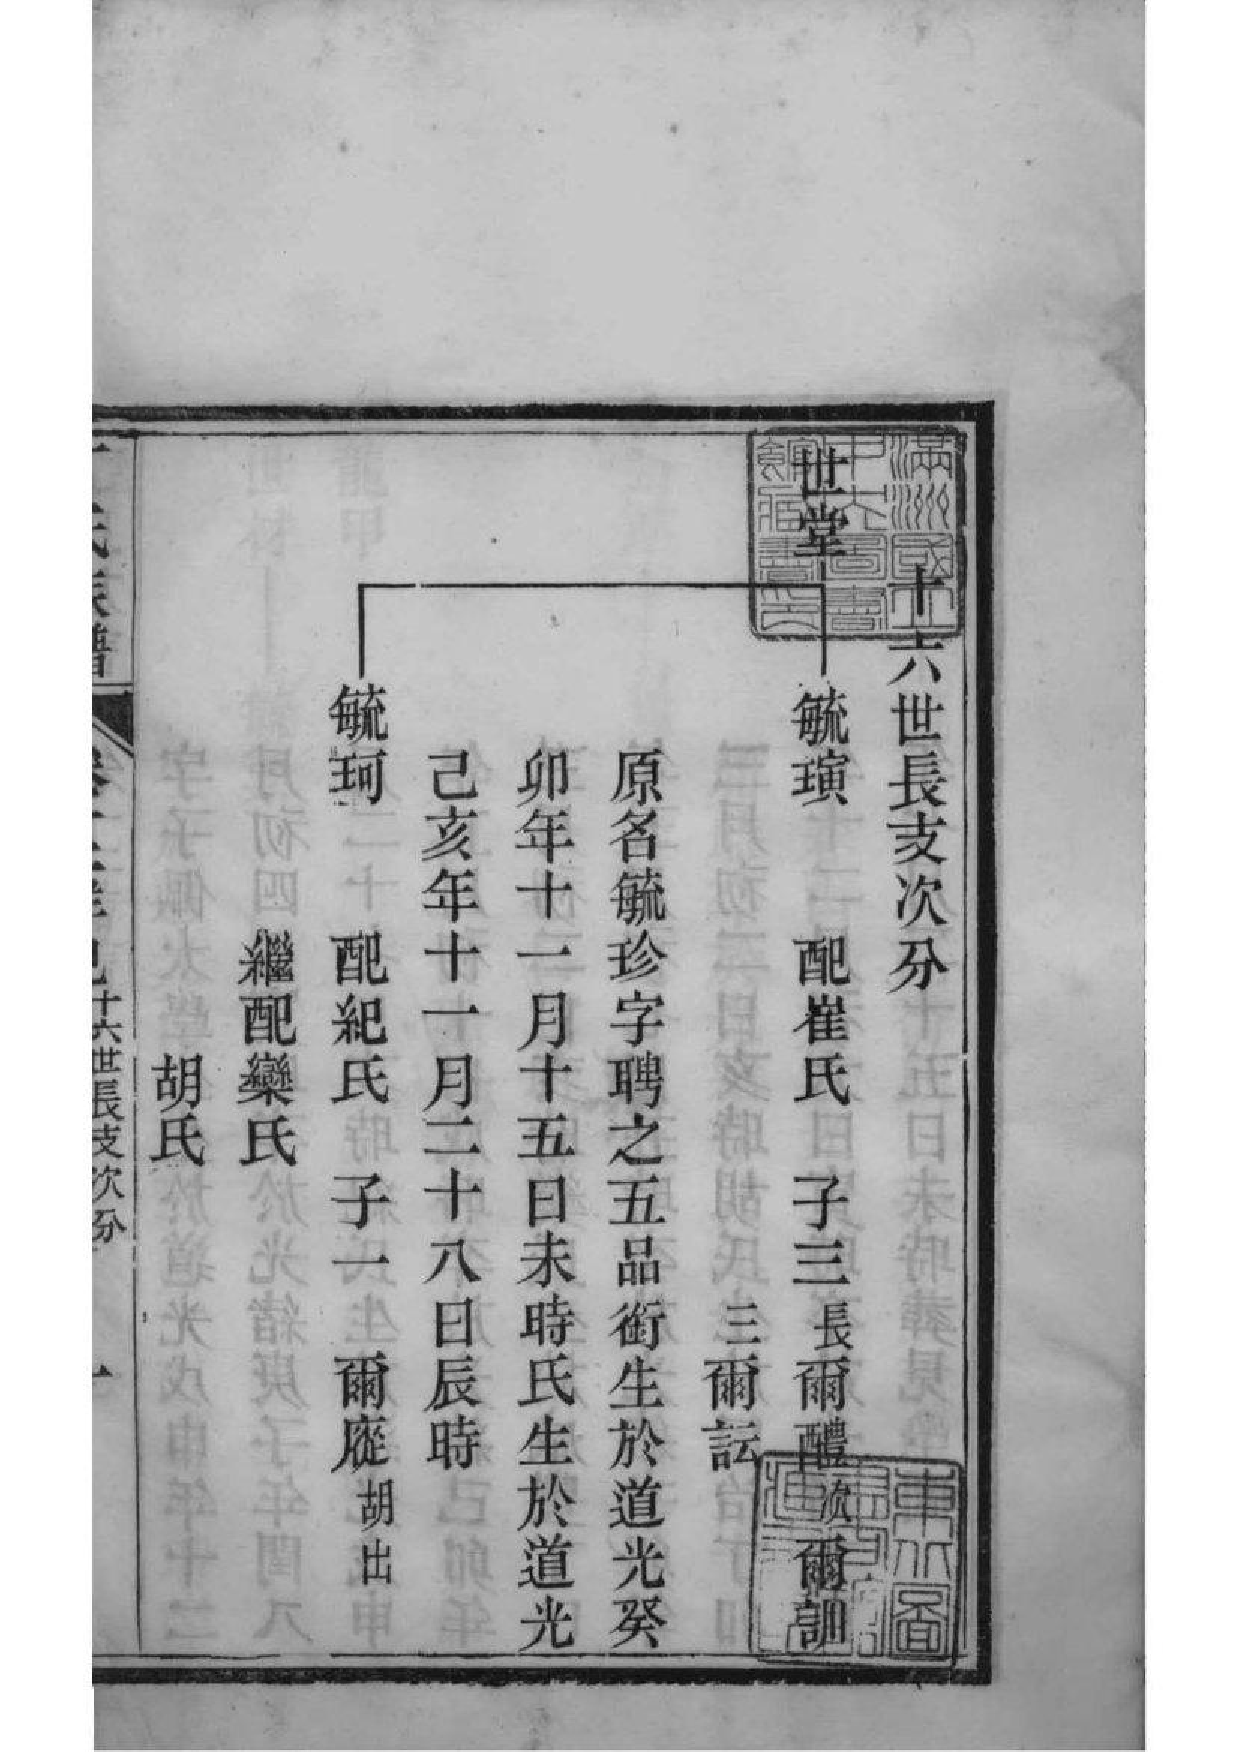 十六世長支次分
世堂
毓璌 配崔氏 子三 長爾醴 次爾訓
三爾訮
原名毓珍字聘之五品銜生於道光癸
卯年十一月十五日未時氏生於道光
己亥年十一月二十八日辰時
毓珂 配紀氏 子一 爾庭 胡出
繼配欒氏
胡氏
氏族譜
十六世長支次分
一